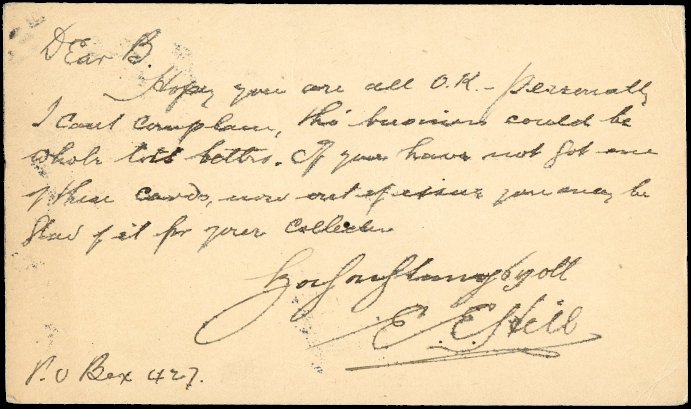 Dear B.
Hope you are all O.K. - Personally
I cant complain, tho' business could be
whole lots better. If you have not got one
of these cards, now out of issue you may be
glad of it for your collection
E. E. Hill
P.O Box 427.